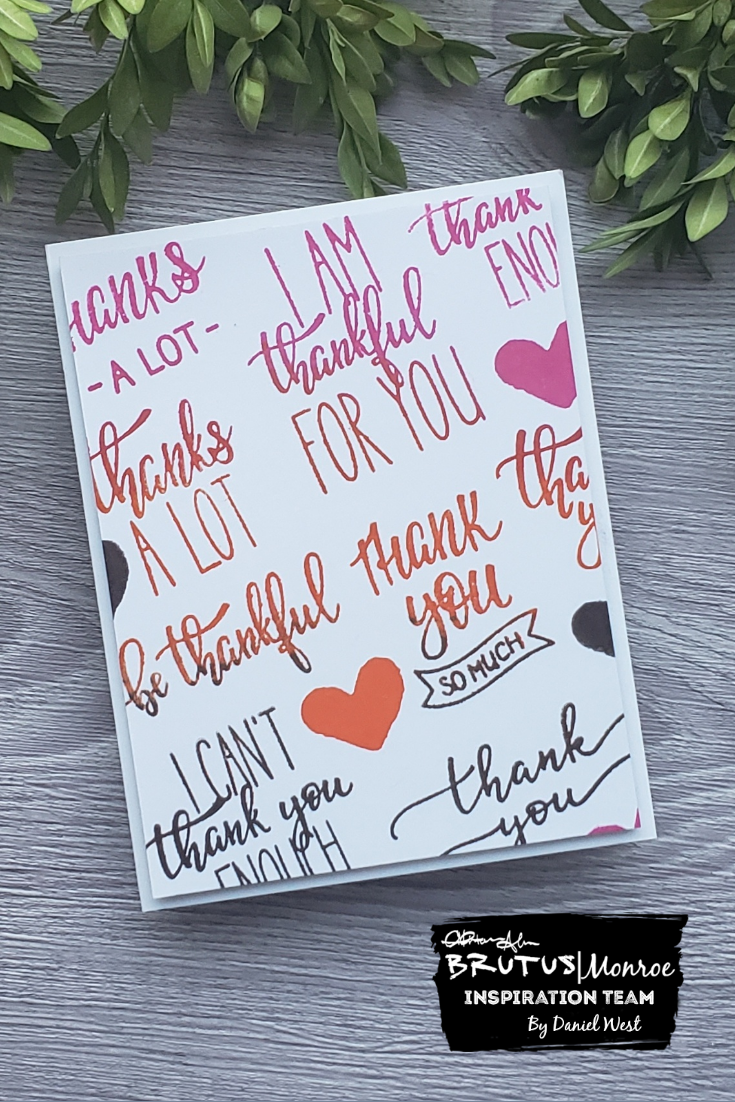 thanks
-A LOT-
I AM
thankful
FOR YOU
thank
ENOU
thanks
A LOT
THANK
you
SO MUCH
tha
y
be thankful
I CAN'T
thank you
ENOUGH
thank
you
BRUTUS|Monroe
INSPIRATION TEAM
By Daniel West